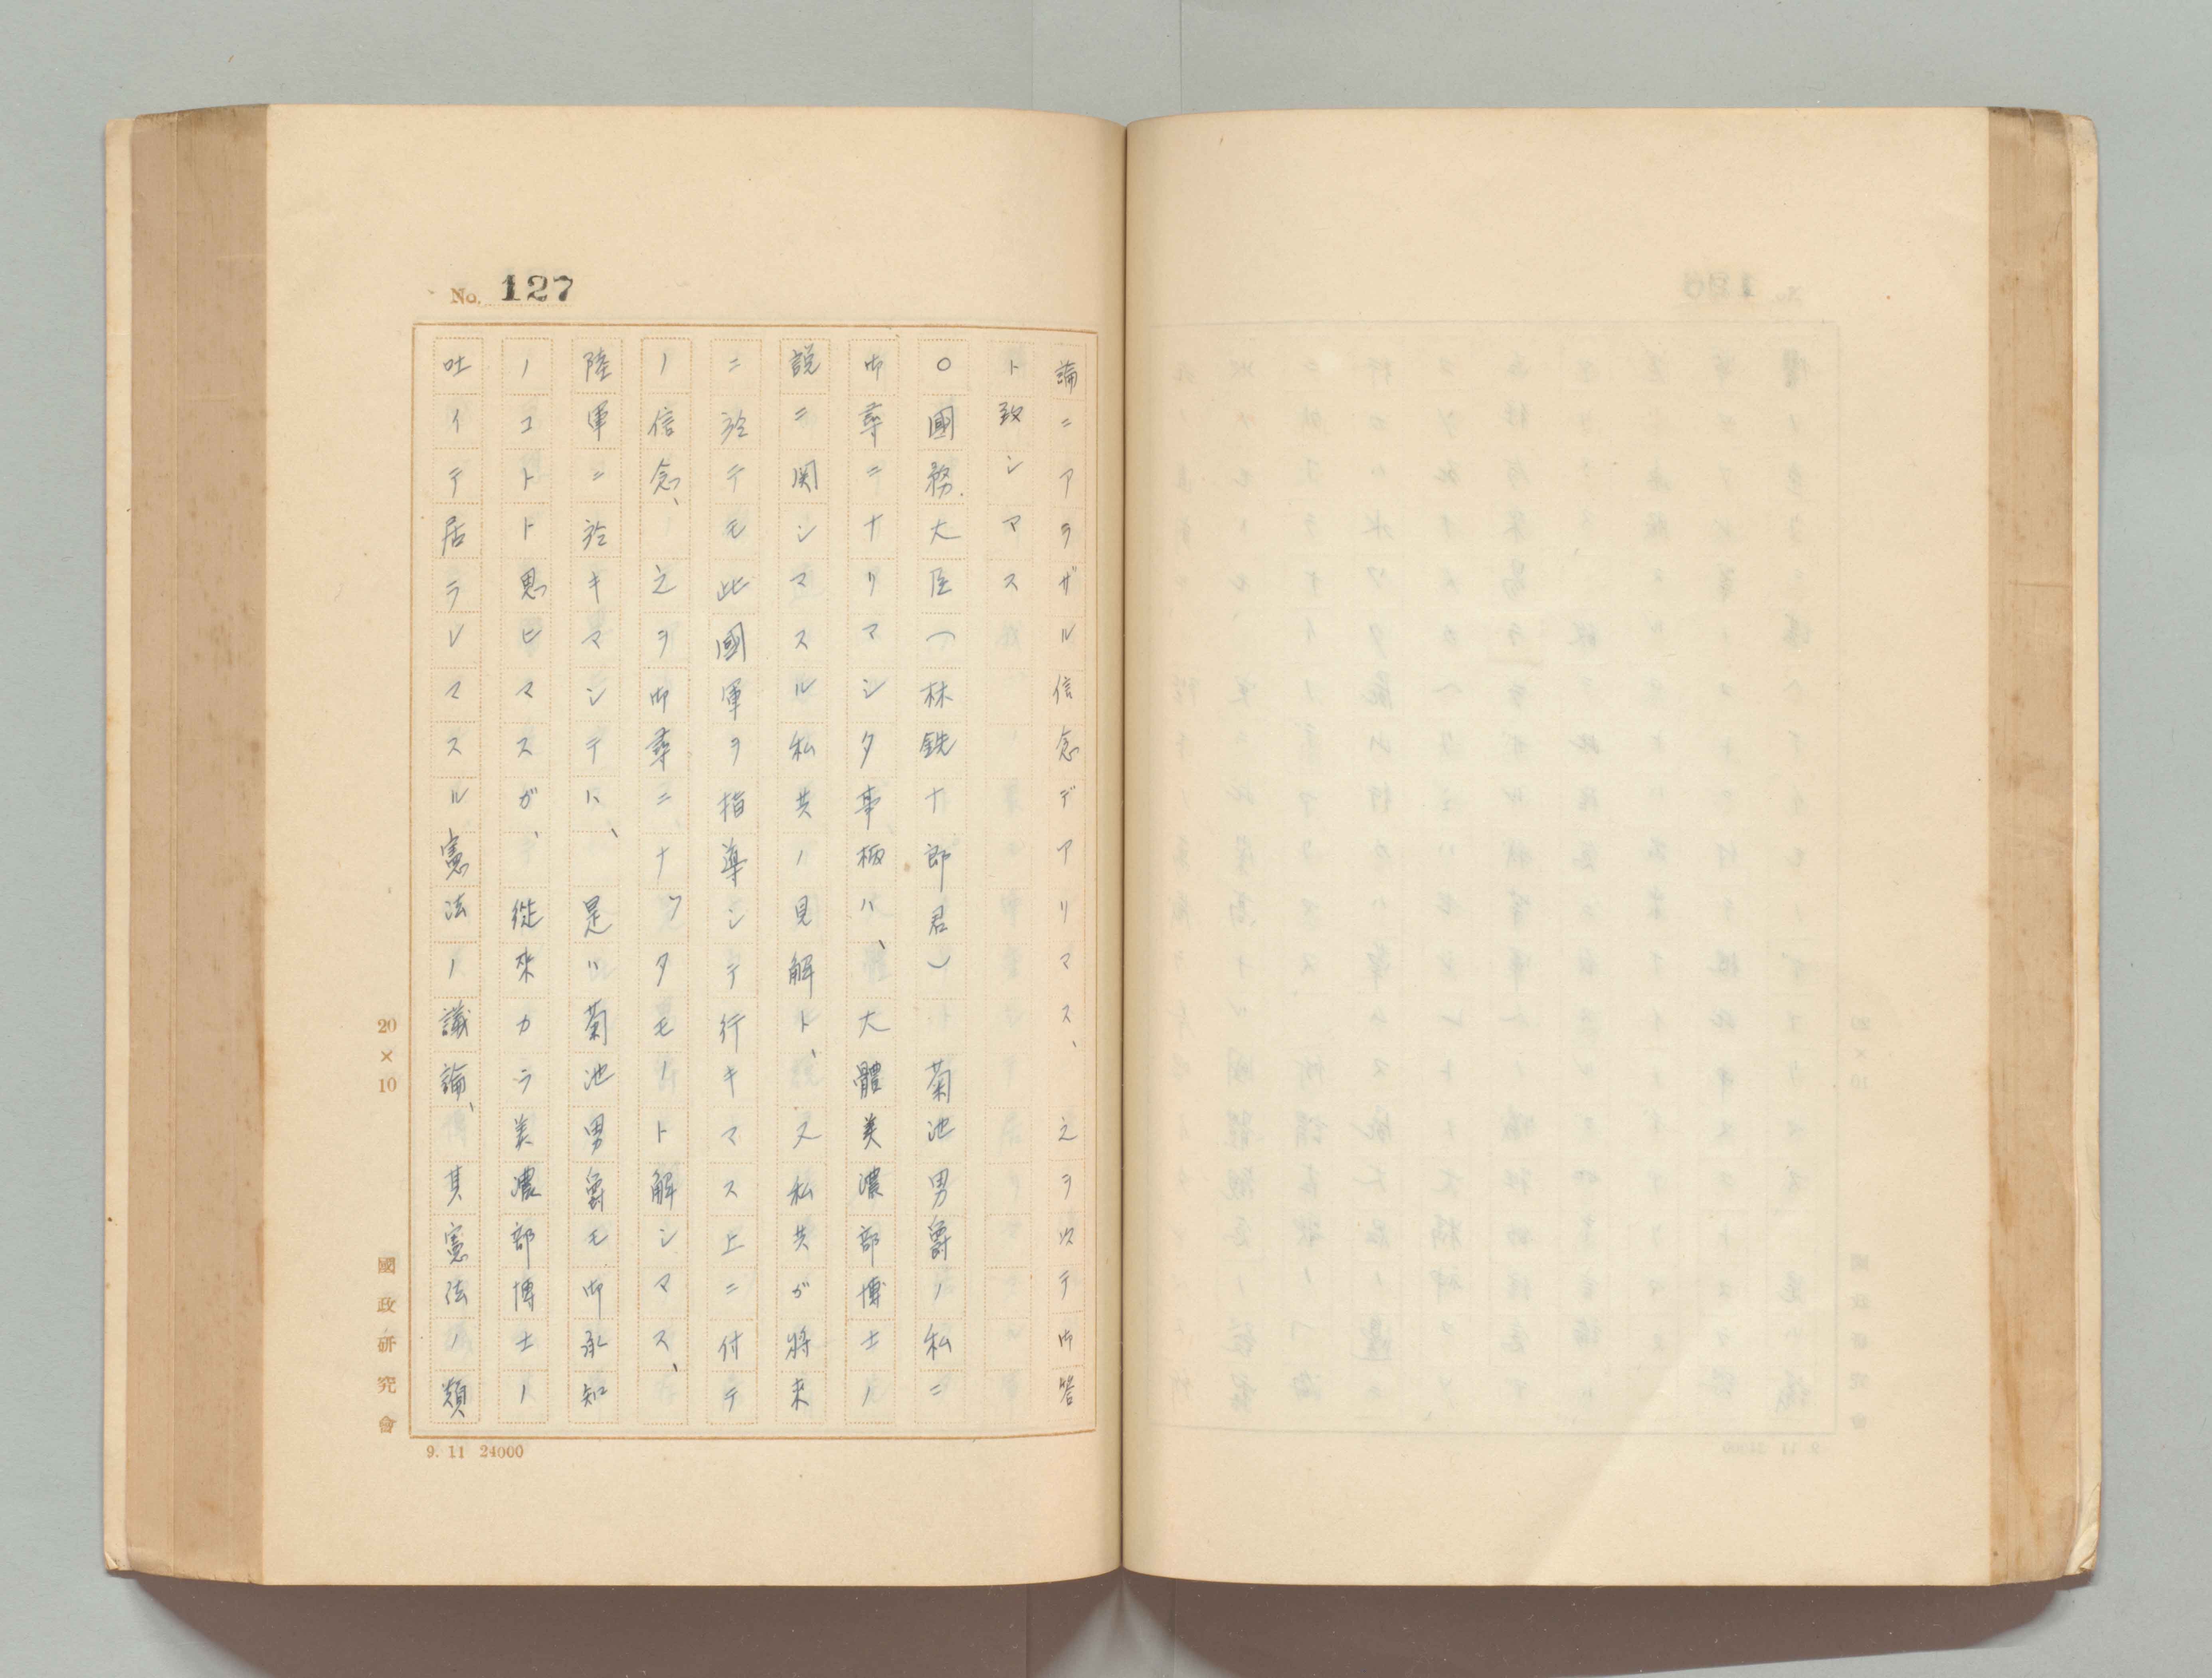 No. 127
論ニアラザル信念デアリマス、之ヲ以テ御答
ト致シマス
○國務大臣(林銑十郎君) 菊池男爵ノ私ニ
御尋ニナリマシタ事柄ハ、大體美濃部博士ノ
説ニ関シマスル私共ノ見解ト、又私共ガ將来
ニ於テモ此國軍ヲ指導シテ行キマス上ニ付テ
ノ信念、之ヲ御尋ニナツタモノト解シマス、
陸軍ニ於キマシテハ、是ハ菊池男爵モ御承知
ノコトト思ヒマスガ、從來カラ美濃部博士ノ
吐イテ居ラレマスル憲法ノ議論、其憲法ノ類
20×10
國政研究會
9. 11 24000